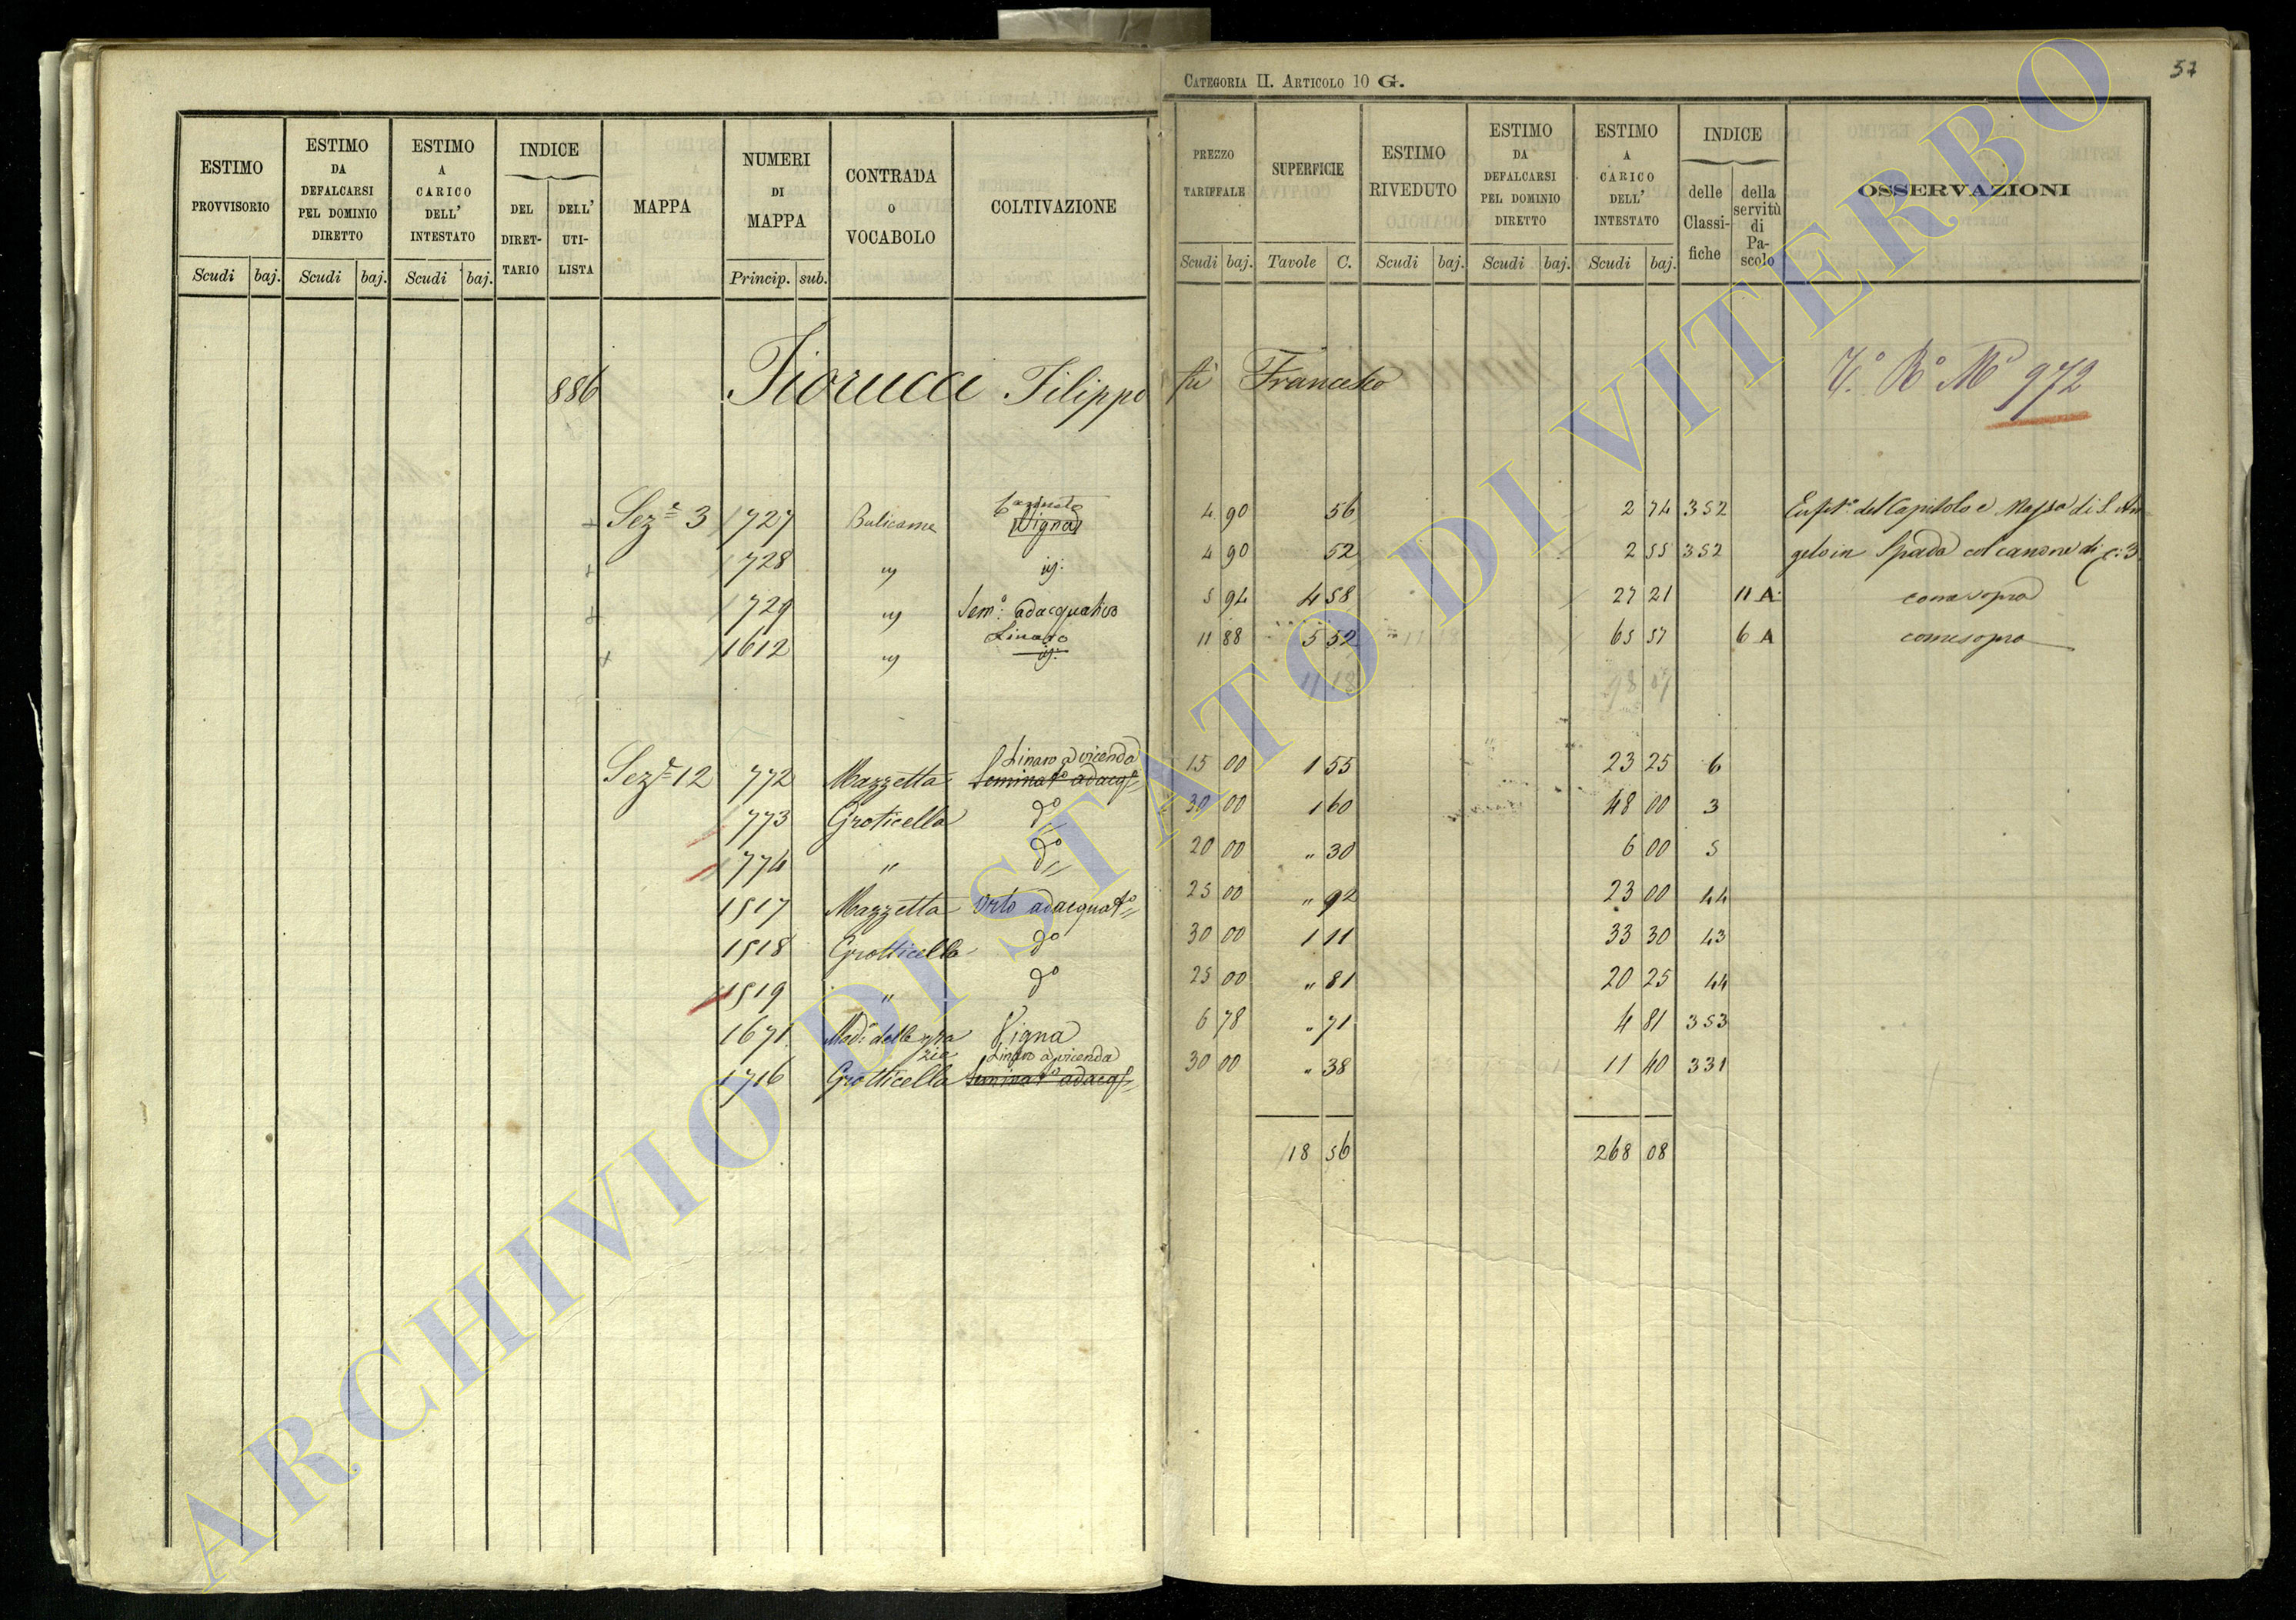 CATEGORIA II. ARTICOLO 10 G. 57
ESTIMO PROVVISORIO Scudi baj.
ESTIMO DA DEFALCARSI PEL DOMINIO DIRETTO Scudi baj.
ESTIMO A CARICO DELL' INTESTATO Scudi baj.
INDICE DEL DIRET-TARIO DELL' UTI-LISTA
MAPPA
NUMERI DI MAPPA Princip. sub.
CONTRADA O VOCABOLO
COLTIVAZIONE
PREZZO TARIFFALE Scudi baj.
SUPERFICIE Tavole C.
ESTIMO RIVEDUTO Scudi baj.
ESTIMO DA DEFALCARSI PEL DOMINIO DIRETTO Scudi baj.
ESTIMO A CARICO DELL' INTESTATO Scudi baj.
INDICE delle Classi-fiche della servitù di Pa-scolo
OSSERVAZIONI
886 Fiorucci Filippo fù Francesco 972
Sez.e 3 727 Bulicame Vigna 4 90 56 2 74 352 del Capitolo e Massa di S. An
728 " id. 4 90 52 2 55 352 gelo in Spada col canone di 3
729 " Sem.o adacquativo 5 94 4 58 27 21 11 A come sopra
Linaro
1612 " id. 11 88 5 52 65 57 6 A come sopra
11 18 98 07
Linaro a vicenda
Sez.e 12 772 Mazzetta Seminat.o adacq.o 15 00 1 55 23 25 6
773 Groticella d.o 30 00 1 60 48 00 3
774 " d.o 20 00 " 30 6 00 5
1517 Mazzetta Orto adacquat.o 25 00 " 92 23 00 44
1518 Grotticella d.o 30 00 1 11 33 30 43
1519 " d.o 25 00 " 81 20 25 44
1671 Mad.a delle gra zie Vigna 6 78 " 71 4 81 353
Linaro a vicenda
1716 Grotticella Seminat.o adacq.o 30 00 " 38 11 40 331
18 56 268 08
ARCHIVIO DI STATO DI VITERBO